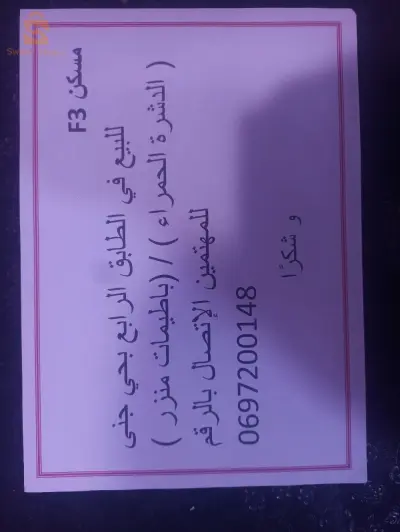 مسكن F3
للبيع في الطابق الرابع بحي جنى
( الدشرة الحمراء ) / (باطيمات منزر )
للمهتمين الإتصال بالرقم
0697200148
و شكرًا